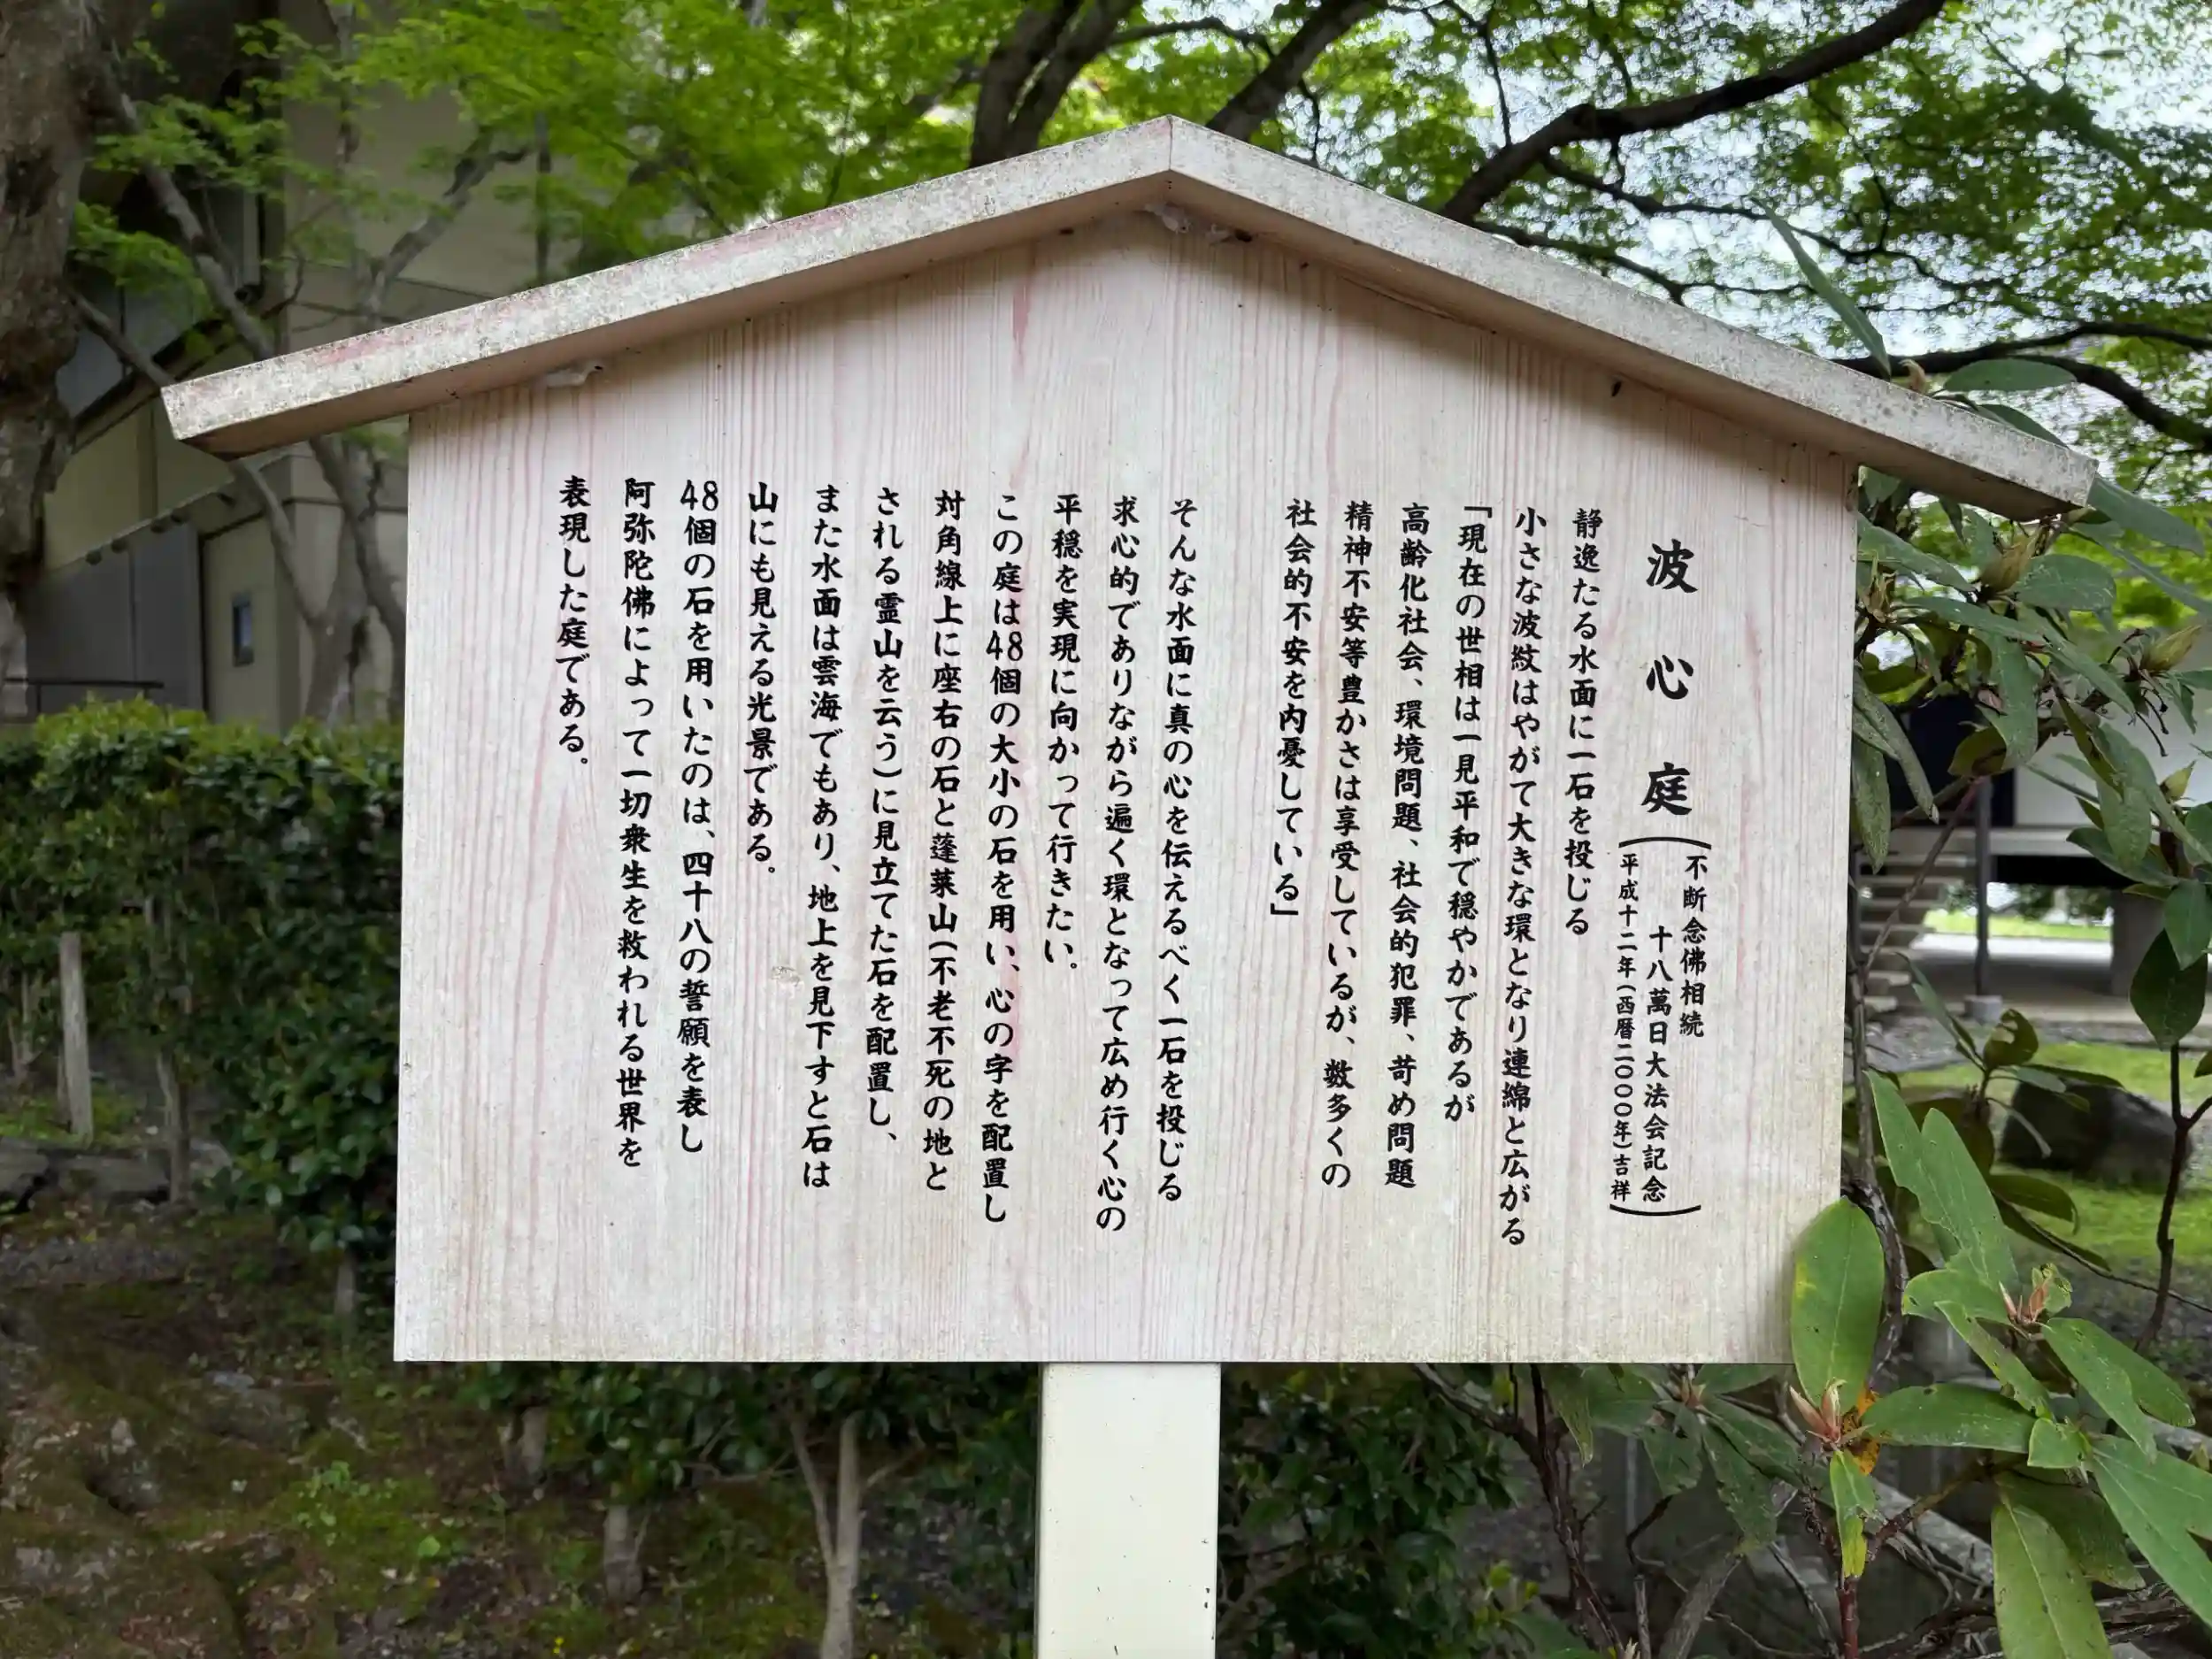 波心庭
不断念佛相続
十八萬日大法会記念
平成十二年(西暦二〇〇〇年)吉祥
静逸たる水面に一石を投じる
小さな波紋はやがて大きな環となり連綿と広がる
「現在の世相は一見平和で穏やかであるが
高齢化社会、環境問題、社会的犯罪、苛め問題
精神不安等豊かさは享受しているが、数多くの
社会的不安を内憂している」
そんな水面に真の心を伝えるべく一石を投じる
求心的でありながら遍く環となって広め行く心の
平穏を実現に向かって行きたい。
この庭は48個の大小の石を用い、心の字を配置し
対角線上に座右の石と蓬莱山(不老不死の地と
される霊山を云う)に見立てた石を配置し、
また水面は雲海でもあり、地上を見下すと石は
山にも見える光景である。
48個の石を用いたのは、四十八の誓願を表し
阿弥陀佛によって一切衆生を救われる世界を
表現した庭である。